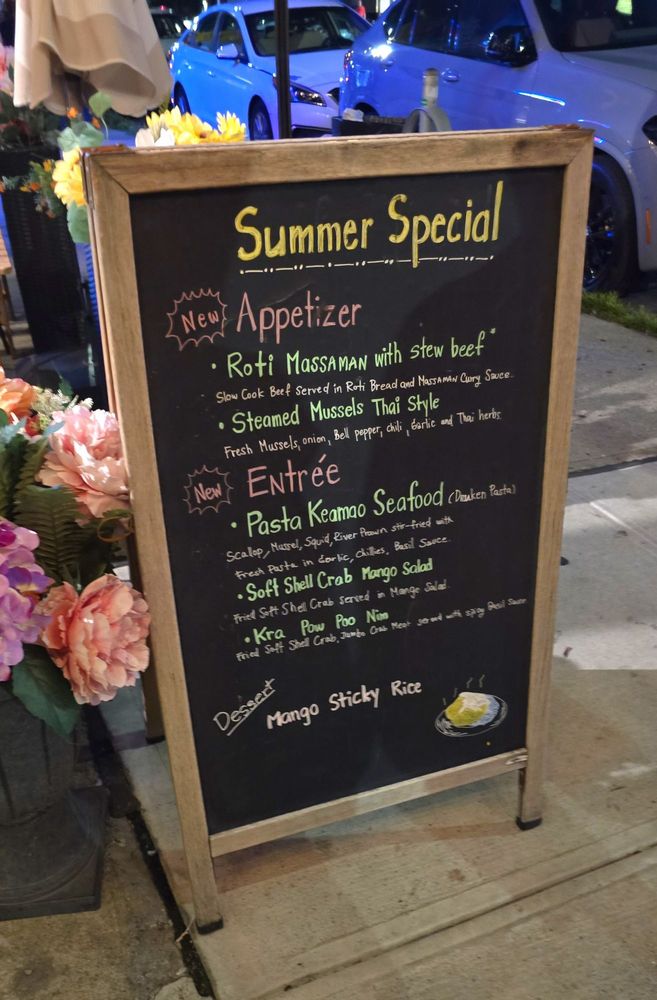 Summer Special
New Appetizer
• Roti Massaman with stew beef*
Slow Cook Beef served in Roti Bread and Massaman Curry Sauce.
• Steamed Mussels Thai Style
Fresh Mussels, onion, Bell pepper, chili, Garlic and Thai herbs.
New Entrée
• Pasta Keamao Seafood (Drunken Pasta)
Scallop, Mussel, Squid, River Prawn stir-fried with
Fresh Pasta in Garlic, Chillies, Basil Sauce.
• Soft Shell Crab Mango Salad
Fried Soft Shell Crab served in Mango Salad.
• Kra Pow Poo Nim
Fried Soft Shell Crab, Jumbo Crab Meat served with spicy Basil Sauce
Dessert
Mango Sticky Rice